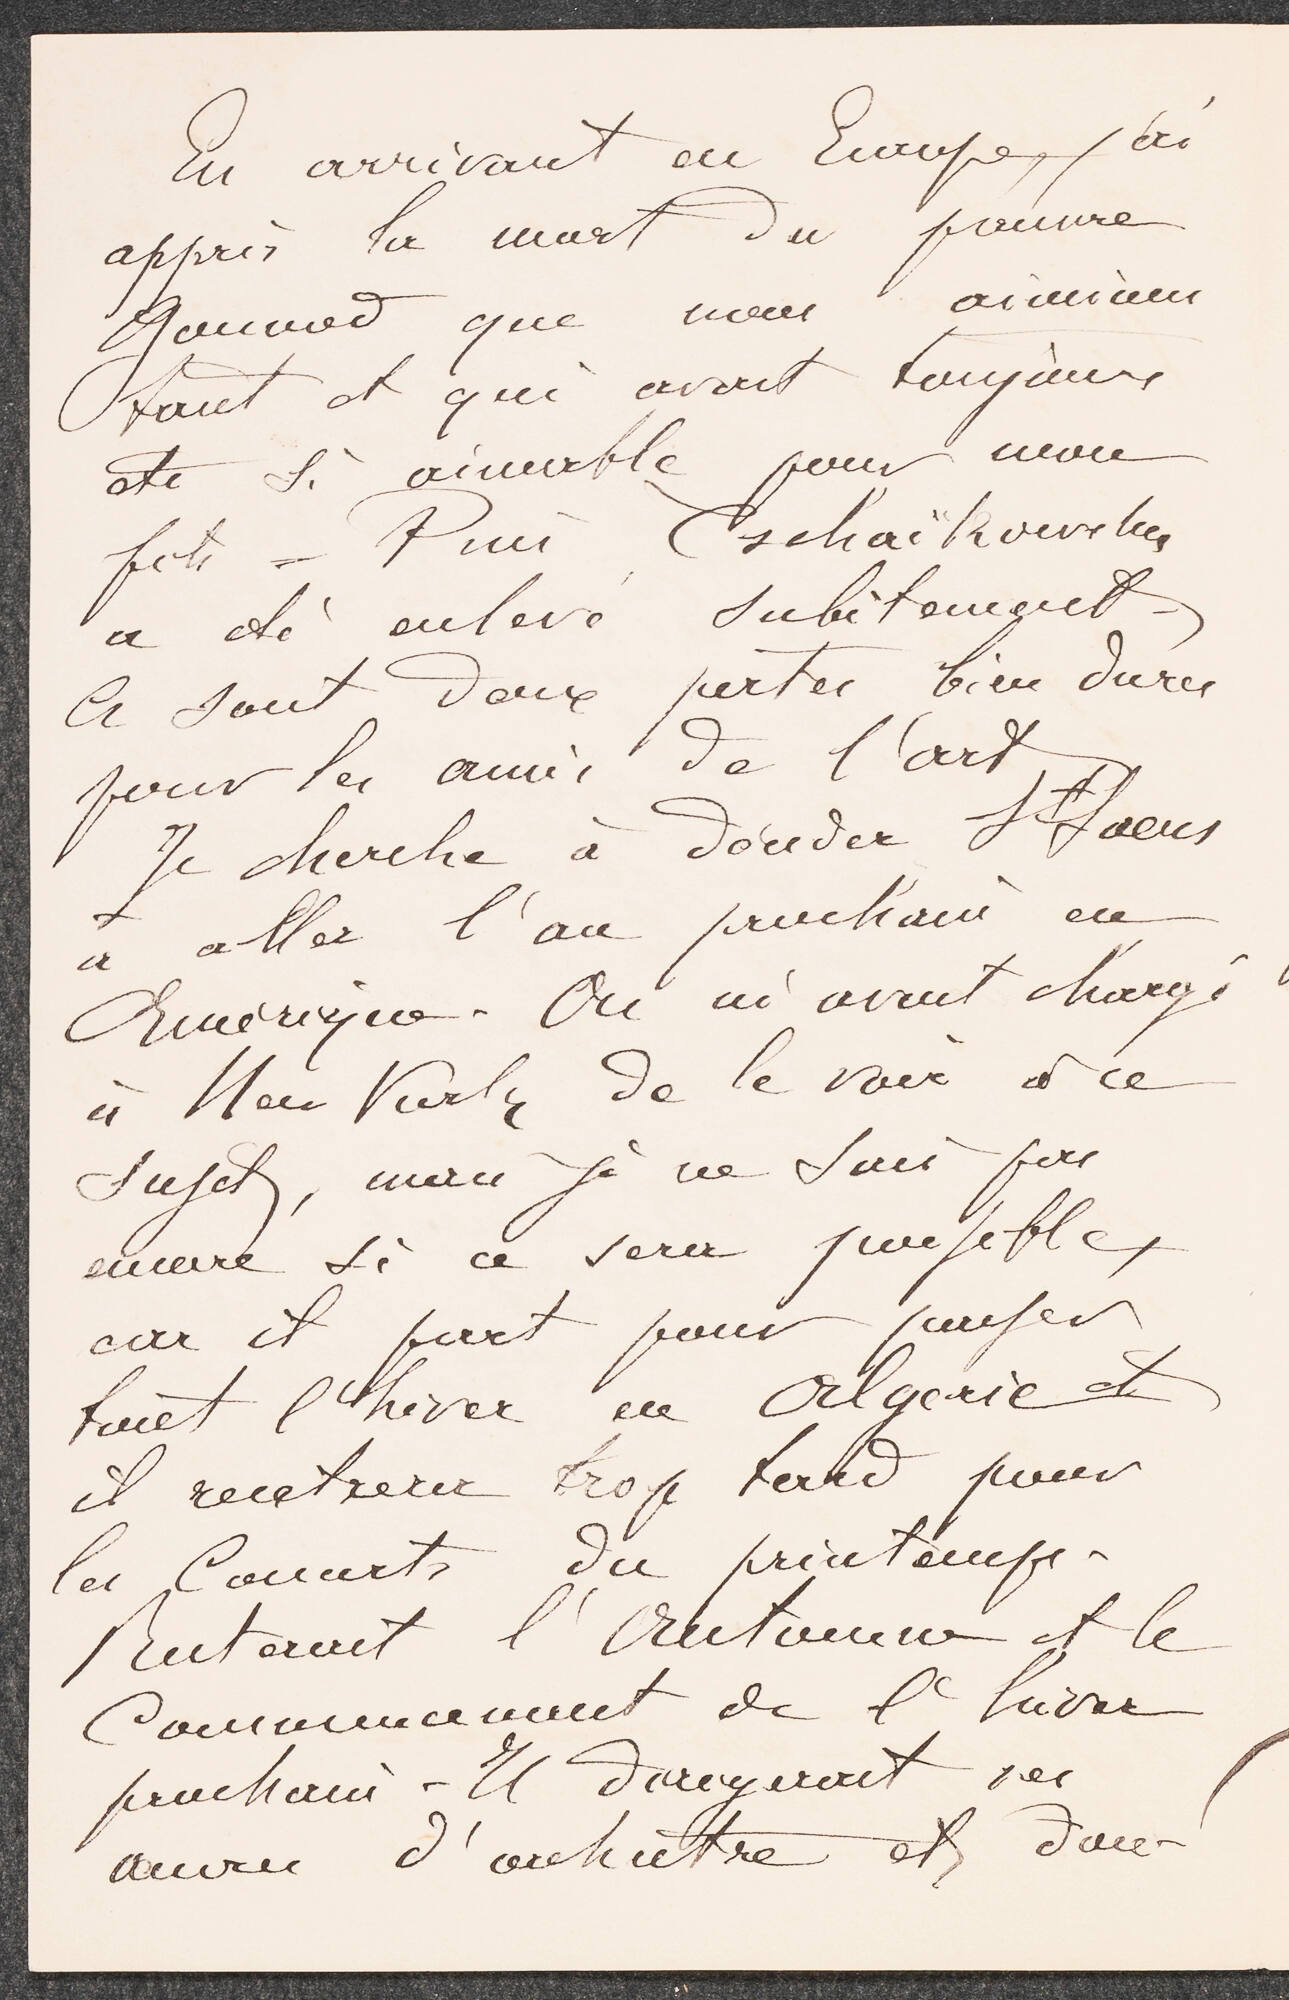 En arrivant en Europe, j'ai
appris la mort du pauvre
Gounod que nous aimions
tant et qui avait toujours
été si aimable pour mon
fils – Puis Tschaïkowsky
a été enlevé subitement –
Ce sont deux pertes bien dures
pour les amis de l'art
Je cherche à décider St Saens
à aller l'an prochain en
Amérique. On m'avait chargé
à New York de le voir à ce
sujet, mais je ne sais pas
encore si ce sera possible,
car il part pour passer
tout l'hiver en Algérie et
il rentrera trop tard pour
les Concerts du printemps.
Resterait l'Automne et le
Commencement de l'hiver
prochain – Il dirigerait ses
œuvres d'orchestre et don-